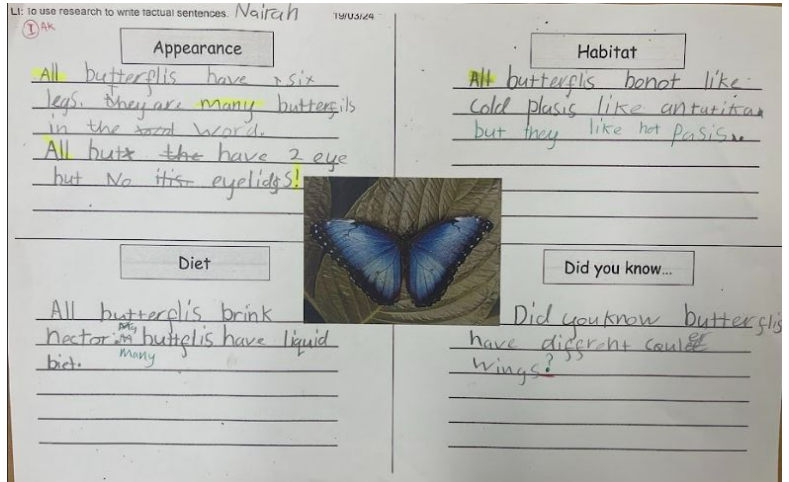 LI: To use research to write factual sentences. Nairah 19/03/24
I AK
Appearance
All butterflis have six
legs. they are many butterfils
in the word.
All but the have 2 eye
but No itis eyelidgs!
Habitat
All butterflis bonot like
cold plasis like antatikan
but they like hot Pasis.
Diet
All butterflis brink
nectar. many buttflis have liquid
biet.
Did you know...
Did you know butterflis
have diffrent couler
wings?